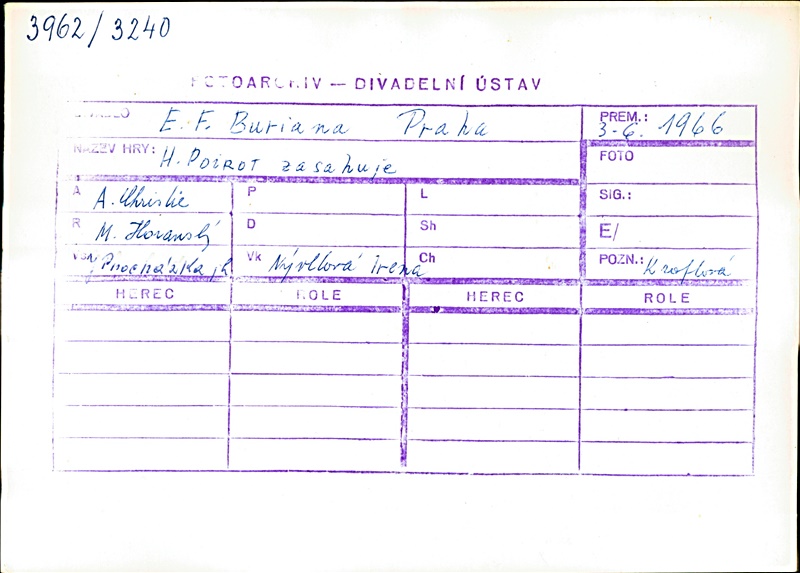 3962/3240
FOTOARCHIV — DIVADELNÍ ÚSTAV
DIVADLO E. F. Buriana Praha PREM.: 3-6. 1966
NÁZEV HRY: H. POIROT zasahuje FOTO
A A. Christie P L SIG.:
R M. Horanský D Sh E/
V. Procházka jh Vk Nývltová Irena Ch POZN.: Kroflová
HEREC ROLE HEREC ROLE